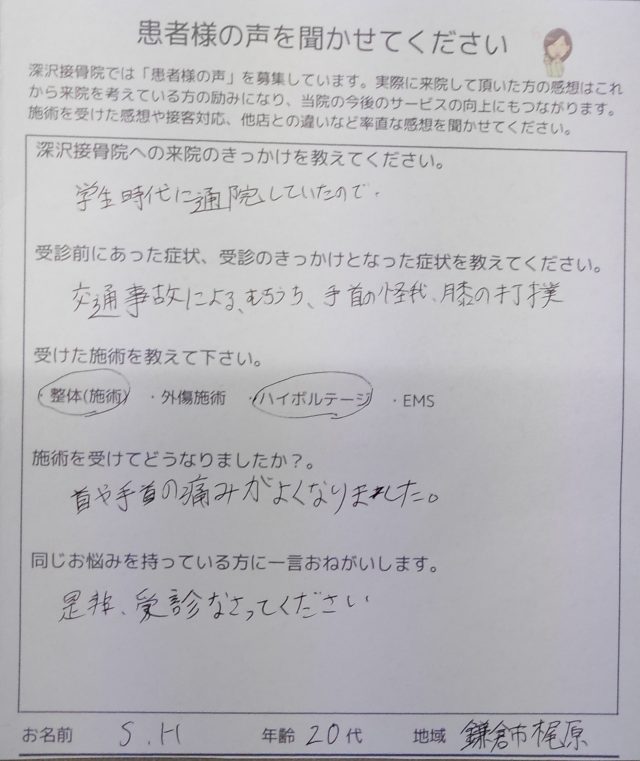 患者様の声を聞かせてください
深沢接骨院では「患者様の声」を募集しています。実際に来院して頂いた方の感想はこれ
から来院を考えている方の励みになり、当院の今後のサービスの向上にもつながります。
施術を受けた感想や接客対応、他店との違いなど率直な感想を聞かせてください。
深沢接骨院への来院のきっかけを教えてください。
学生時代に通院していたので.
受診前にあった症状、受診のきっかけとなった症状を教えてください。
交通事故による、むちうち、手首の怪我、膝の打撲
受けた施術を教えて下さい。
・整体(施術) ・外傷施術 ・ハイボルテージ ・EMS
施術を受けてどうなりましたか？。
首や手首の痛みがよくなりました。
同じお悩みを持っている方に一言おねがいします。
是非、受診なさってください
お名前 S.H 年齢 20代 地域 鎌倉市梶原